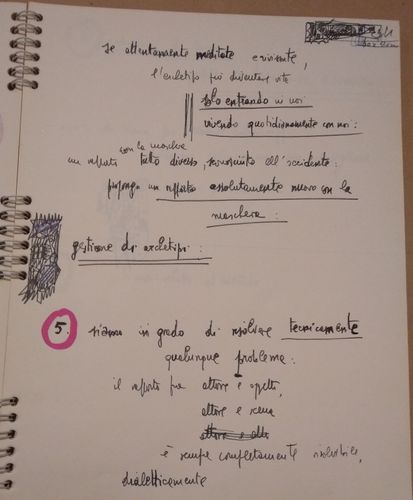 se attentamente meditate e rivissute,
l'archetipo può diventare vita
solo entrando in noi
vivendo quotidianamente con noi:
con la maschera
un rapporto tutto diverso, sconosciuto all'occidente:
propongo un rapporto assolutamente nuovo con la
maschera:
gestione di archetipi:
5. siamo in grado di risolvere tecnicamente
qualunque problema:
il rapporto fra attore e oggetti,
attore e scena
attore e
è sempre completamente risolvibile,
dialetticamente